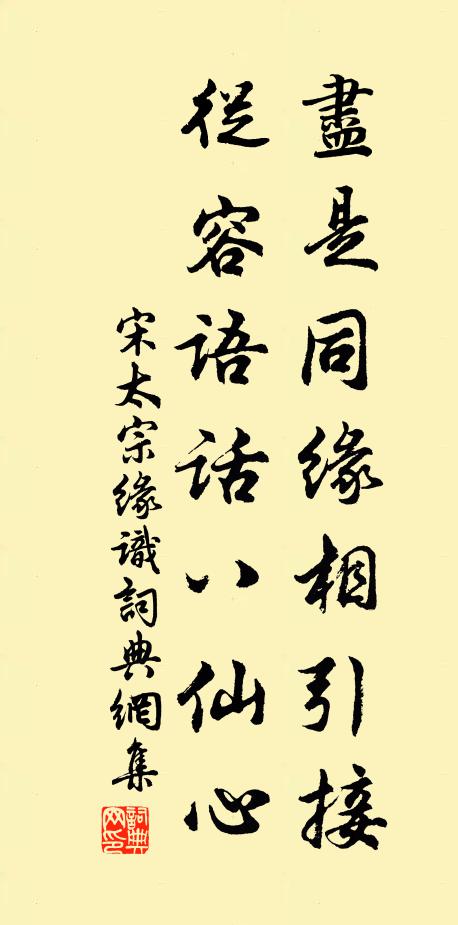 盡是同緣相引接
從容語話八仙心
宋太宗緣識詞典網集
詞典網印